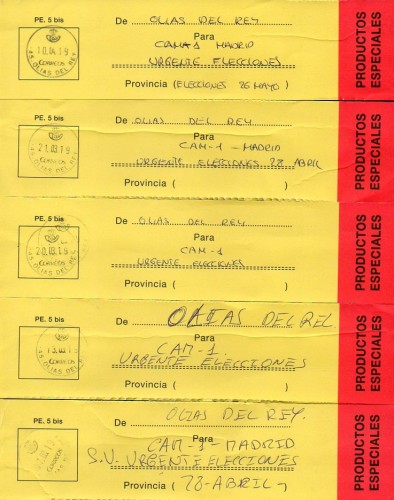 PE. 5 bis
De OLIAS DEL REY
Para
CAM-1 MADRID
URGENTE ELECCIONES
Provincia (ELECCIONES 26 MAYO)
10.04.19
45 OLIAS DEL REY
CORREOS
PRODUCTOS
ESPECIALES
PE. 5 bis
De OLIAS DEL REY
Para
CAM-1-MADRID
URGENTE ELECCIONES 28 ABRIL
Provincia ( )
21.03.19
45 OLIAS DEL REY
CORREOS
PRODUCTOS
ESPECIALES
PE. 5 bis
De OLIAS DEL REY
Para
CAM-1
URGENTE ELECCIONES
Provincia ( )
20.03.19
45 OLIAS DEL REY
CORREOS
PRODUCTOS
ESPECIALES
PE. 5 bis
De OLIAS DEL REL
Para
CAM-1
URGENTE ELECCIONES
Provincia ( )
13.03.19
45 OLIAS DEL REY
CORREOS
PRODUCTOS
ESPECIALES
PE. 5 bis
De OLIAS DEL REY.
Para
CAM-1-MADRID
S.V. URGENTE ELECCIONES
Provincia (28-ABRIL)
PRODUCTOS
ESPECIALES